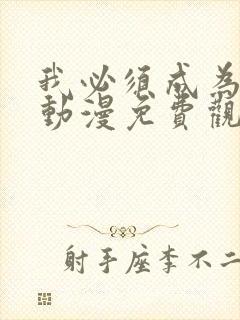 我必须成为
動漫免費觀
射手座李不二